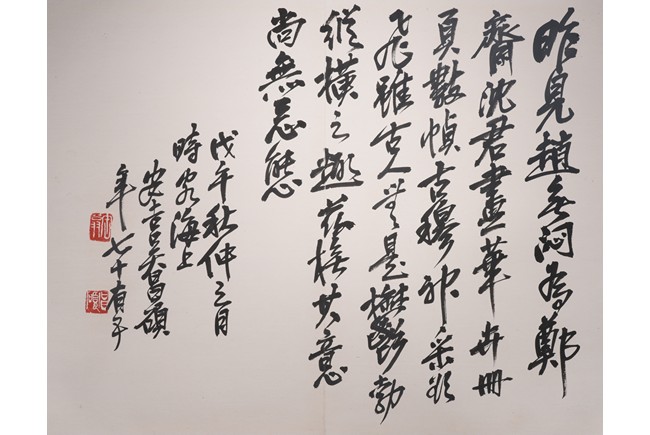 昨見趙无悶為鄭
齋沈君畫華卉冊
頁數幀古穆神采欲
飛雖古人無是鬱勃
縱橫之趣茲橅其意
尚無惡態
戊午秋仲之月
時客海上
安吉吳昌碩
年七十有五